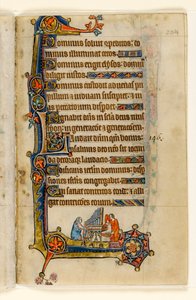 Dominus soluit compeditos: do
minus illuminat cecos
Dominus erigit elisos: dominus
diligit iustos
Dominus custodit aduenas pu
pillum et uiduam suscipiet: et ui
as peccatorum disperdet
Regnabit dominus in secula deus tuus
syon: in generatione et generationem
Laudate dominum quoniam bonus 146.
psalmus deo nostro sit iocun
da decoraque laudatio
Edificans ierusalem dominus: dis
persiones israel congregabit
Qui sanat contritos corde: et al
ligat contriciones eorum